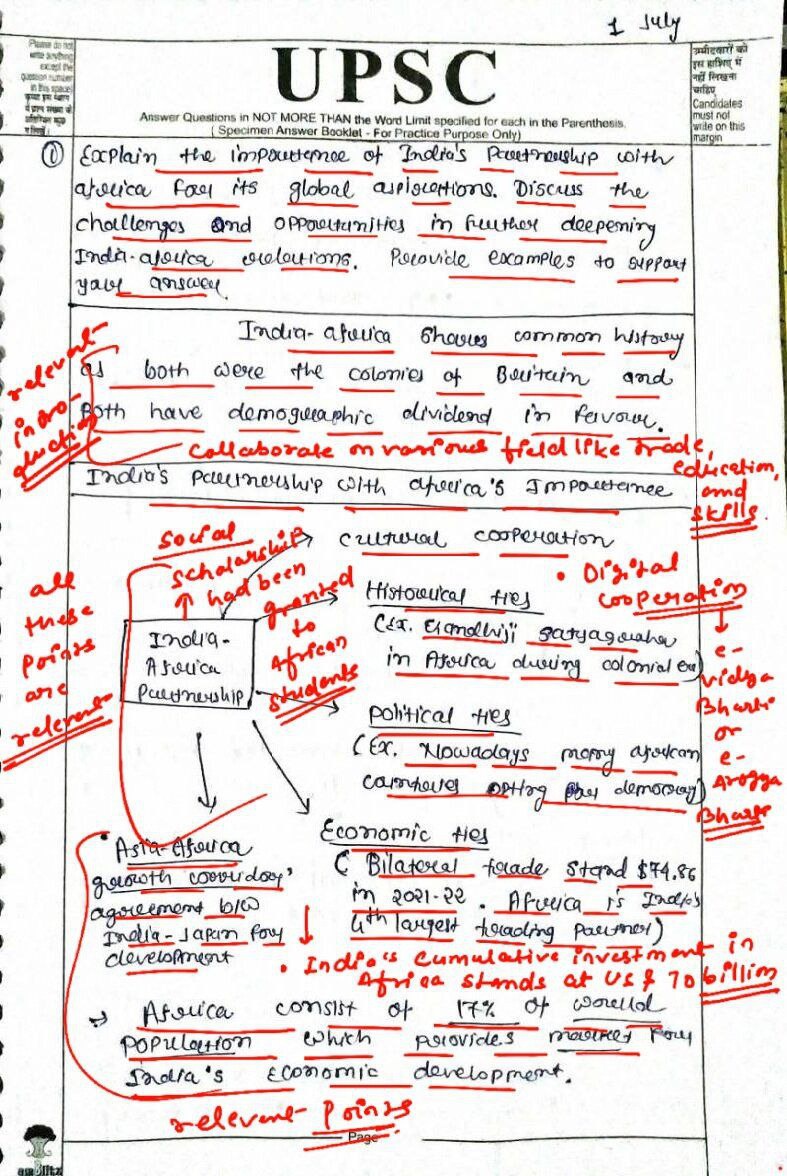 1 July
Please do not
write anything
except the
question number
in this space
UPSC
उम्मीदवारों को
इस हाशिए में
नहीं लिखना
चाहिए
Candidates
must not
write on this
margin
Answer Questions in NOT MORE THAN the Word Limit specified for each in the Parenthesis.
( Specimen Answer Booklet - For Practice Purpose Only)
① Explain the importance of India's Partnership with
africa for its global aspirations. Discuss the
challenges and opportunities in further deepening
India-africa relations. Provide examples to support
your answer.
India-africa shares common history
as both were the colonies of Britain and
Both have demographic dividend in favour.
relevant
intro-
duction
collaborate on various field like trade,
education,
and
skills.
India's Partnership with africa's Importance
cultural cooperation
social
scholarship
had been
granted
to
African
students
• Digital
cooperation
e-
vidya
Bharti
or
e-
Arogya
Bharti
Historical ties
(Ex. Gandhiji satyagraha
in Africa during colonial era)
India-
Africa
Partnership
all
these
points
are
relevant
Political ties
(Ex. Nowadays many african
countries opting for democracy)
Economic ties
( Bilateral trade stand $74.86
in 2021-22. Africa is India's
4th largest trading partner)
'Asia-Africa
growth corridor'
agreement b/w
India-Japan for
development
• India's cumulative investment in
Africa stands at US $ 70 billion
→ Africa consist of 17% of world
population which provides market for
India's Economic development.
relevant points
Page